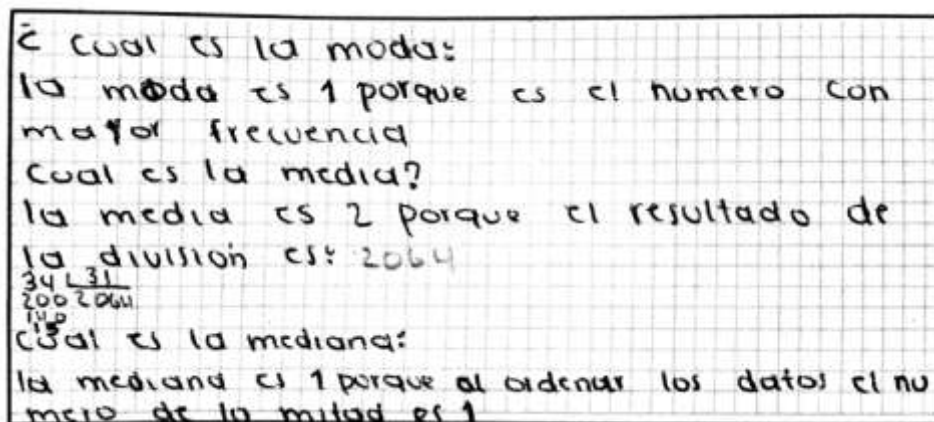 ¿ cual es la moda:
la moda es 1 porque es el numero con
mayor frecuencia
cual es la media?
la media es 2 porque el resultado de
la división es: 2064
34 31
200 2064
140
cual es la mediana:
la mediana es 1 porque al ordenar los datos el nu
mero de la mitad es 1